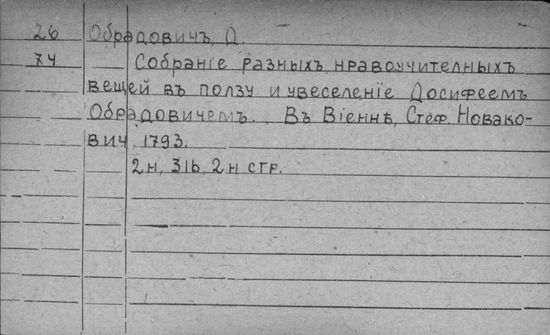 26 Обрадовичъ, Д.
74 Собраніе разныхъ нравоучителныхъ
вещей въ ползу и увеселеніе Досифеемъ
Обрадовичемъ. Въ Віеннѣ, Стеф. Новако-
вич, 1793.
2н, 316, 2н стр.